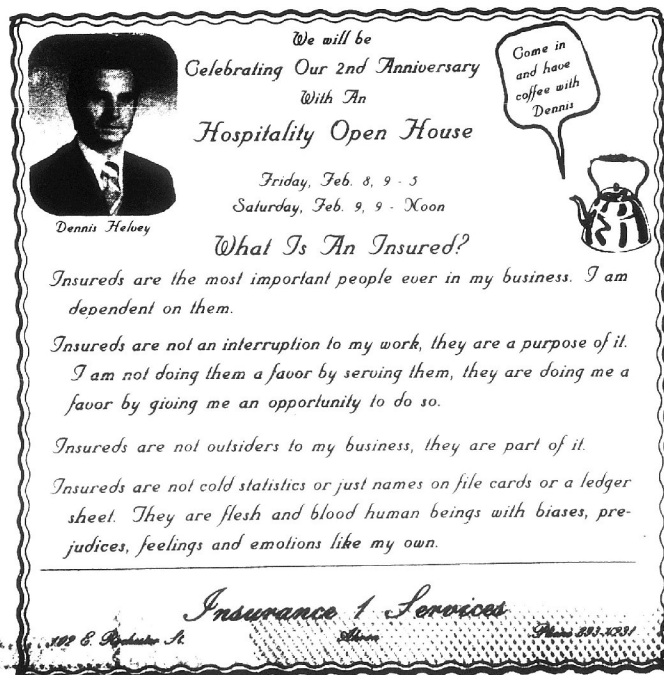 We will be
Celebrating Our 2nd Anniversary
With An
Hospitality Open House
Come in
and have
coffee with
Dennis
Friday, Feb. 8, 9 - 5
Saturday, Feb. 9, 9 - Noon
Dennis Helvey
What Is An Insured?
Insureds are the most important people ever in my business. I am
dependent on them.
Insureds are not an interruption to my work, they are a purpose of it.
I am not doing them a favor by serving them, they are doing me a
favor by giving me an opportunity to do so.
Insureds are not outsiders to my business, they are part of it.
Insureds are not cold statistics or just names on file cards or a ledger
sheet. They are flesh and blood human beings with biases, pre-
judices, feelings and emotions like my own.
Insurance 1 Services
E. Rochester St.
Akron
Phone